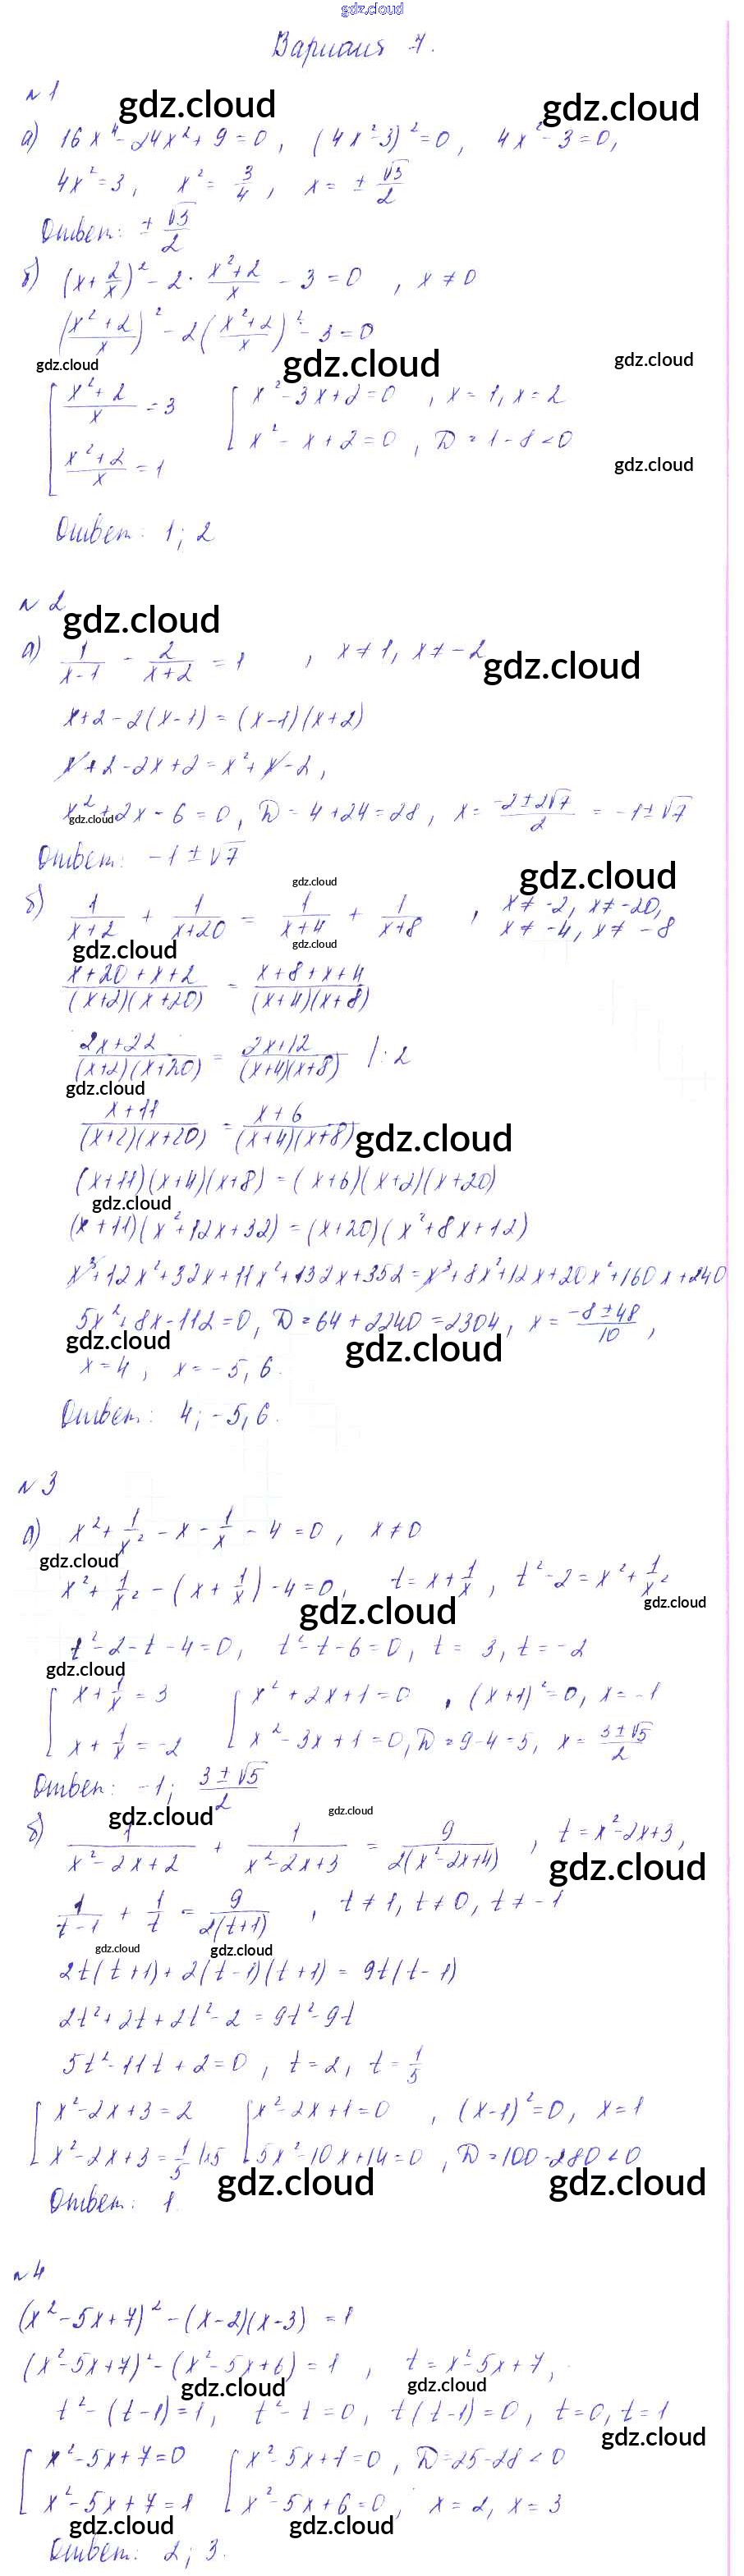 gdz.cloud
Вариант 7.
№1
gdz.cloud gdz.cloud
а) 16x⁴-24x²+9=0, (4x²-3)²=0, 4x²-3=0,
4x²=3, x²=3/4, x=±√3/2
Ответ: ±√3/2
б) (x+2/x)²-2·(x²+2)/x-3=0, x≠0
((x²+2)/x)²-2((x²+2)/x)²-3=0
gdz.cloud gdz.cloud gdz.cloud
[(x²+2)/x=3 [x²-3x+2=0, x=1, x=2
[(x²+2)/x=1 [x²-x+2=0, D=1-8<0
gdz.cloud
Ответ: 1; 2
№2
gdz.cloud
а) 1/(x-1)-2/(x+2)=1, x≠1, x≠-2
gdz.cloud
x+2-2(x-1)=(x-1)(x+2)
x+2-2x+2=x²+x-2,
x²+2x-6=0, D=4+24=28, x=(-2±2√7)/2=-1±√7
gdz.cloud
Ответ: -1±√7
gdz.cloud gdz.cloud
б) 1/(x+2)+1/(x+20)=1/(x+4)+1/(x+8), x≠-2, x≠-20, x≠-4, x≠-8
gdz.cloud gdz.cloud
(x+20+x+2)/((x+2)(x+20))=(x+8+x+4)/((x+4)(x+8))
(2x+22)/((x+2)(x+20))=(2x+12)/((x+4)(x+8)) |:2
gdz.cloud
(x+11)/((x+2)(x+20))=(x+6)/((x+4)(x+8))
gdz.cloud
(x+11)(x+4)(x+8)=(x+6)(x+2)(x+20)
gdz.cloud
(x+11)(x²+12x+32)=(x+20)(x²+8x+12)
x³+12x²+32x+11x²+132x+352=x³+8x²+12x+20x²+160x+240
5x²+8x-112=0, D=64+2240=2304, x=(-8±48)/10,
gdz.cloud gdz.cloud
x=4, x=-5,6.
Ответ: 4; -5,6.
№3
а) x²+1/x²-x-1/x-4=0, x≠0
gdz.cloud
x²+1/x²-(x+1/x)-4=0, t=x+1/x, t²-2=x²+1/x²
gdz.cloud gdz.cloud
t²-2-t-4=0, t²-t-6=0, t=3, t=-2
gdz.cloud
[x+1/x=3 [x²+2x+1=0, (x+1)²=0, x=-1
[x+1/x=-2 [x²-3x+1=0, D=9-4=5, x=(3±√5)/2
Ответ: -1; (3±√5)/2
gdz.cloud gdz.cloud
б) 1/(x²-2x+2)+1/(x²-2x+3)=9/(2(x²-2x+4)), t=x²-2x+3,
gdz.cloud
1/(t-1)+1/t=9/(2(t+1)), t≠1, t≠0, t≠-1
gdz.cloud gdz.cloud
2t(t+1)+2(t-1)(t+1)=9t(t-1)
2t²+2t+2t²-2=9t²-9t
5t²-11t+2=0, t=2, t=1/5
[x²-2x+3=2 [x²-2x+1=0, (x-1)²=0, x=1
[x²-2x+3=1/5 |·5 [5x²-10x+14=0, D=100-280<0
gdz.cloud gdz.cloud
Ответ: 1.
№4
(x²-5x+7)²-(x-2)(x-3)=1
(x²-5x+7)²-(x²-5x+6)=1, t=x²-5x+7,
gdz.cloud gdz.cloud
t²-(t-1)=1, t²-t=0, t(t-1)=0, t=0, t=1
gdz.cloud
[x²-5x+7=0 [x²-5x+7=0, D=25-28<0
[x²-5x+7=1 [x²-5x+6=0, x=2, x=3
gdz.cloud gdz.cloud
Ответ: 2; 3.